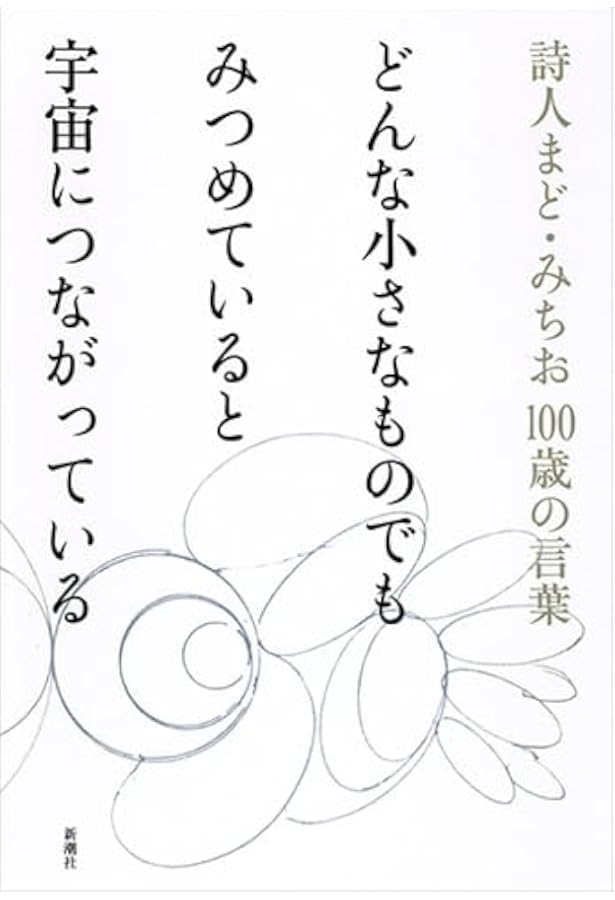 詩人まど・みちお 100歳の言葉
どんな小さなものでも
みつめていると
宇宙につながっている
新潮社